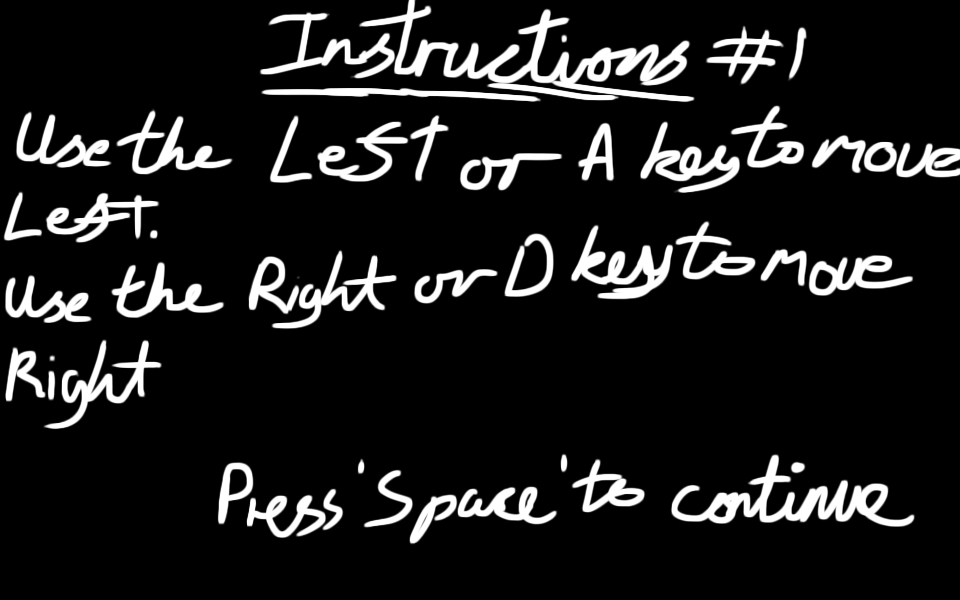 Instructions #1
Use the Left or A key to move
Left.
Use the Right or D key to move
Right
Press 'Space' to continue